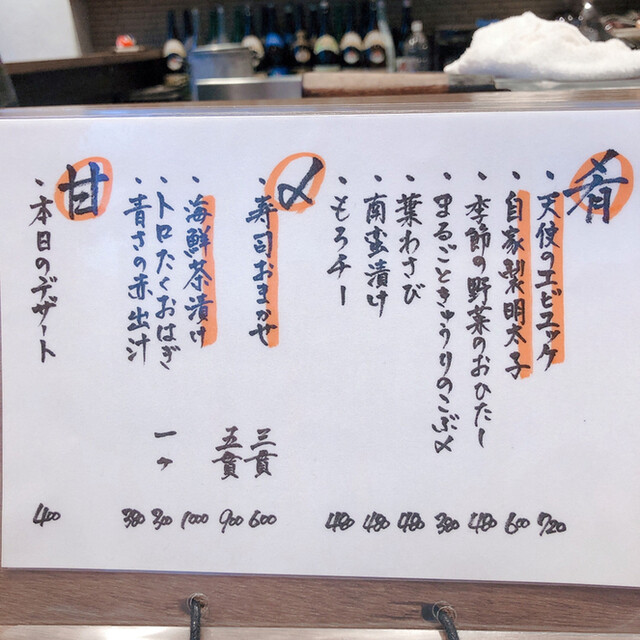 肴
・天使のエビユッケ 720
・自家製明太子 600
・季節の野菜のおひたし 480
・まるごときゅうりのこぶ〆 380
・葉わさび 480
・南蛮漬け 480
・もろチー 480
〆
・寿司おまかせ 三貫 600
五貫 900
・海鮮茶漬け 1000
・トロたくおはぎ 一ヶ 300
・青さの赤出汁 380
甘
・本日のデザート 400